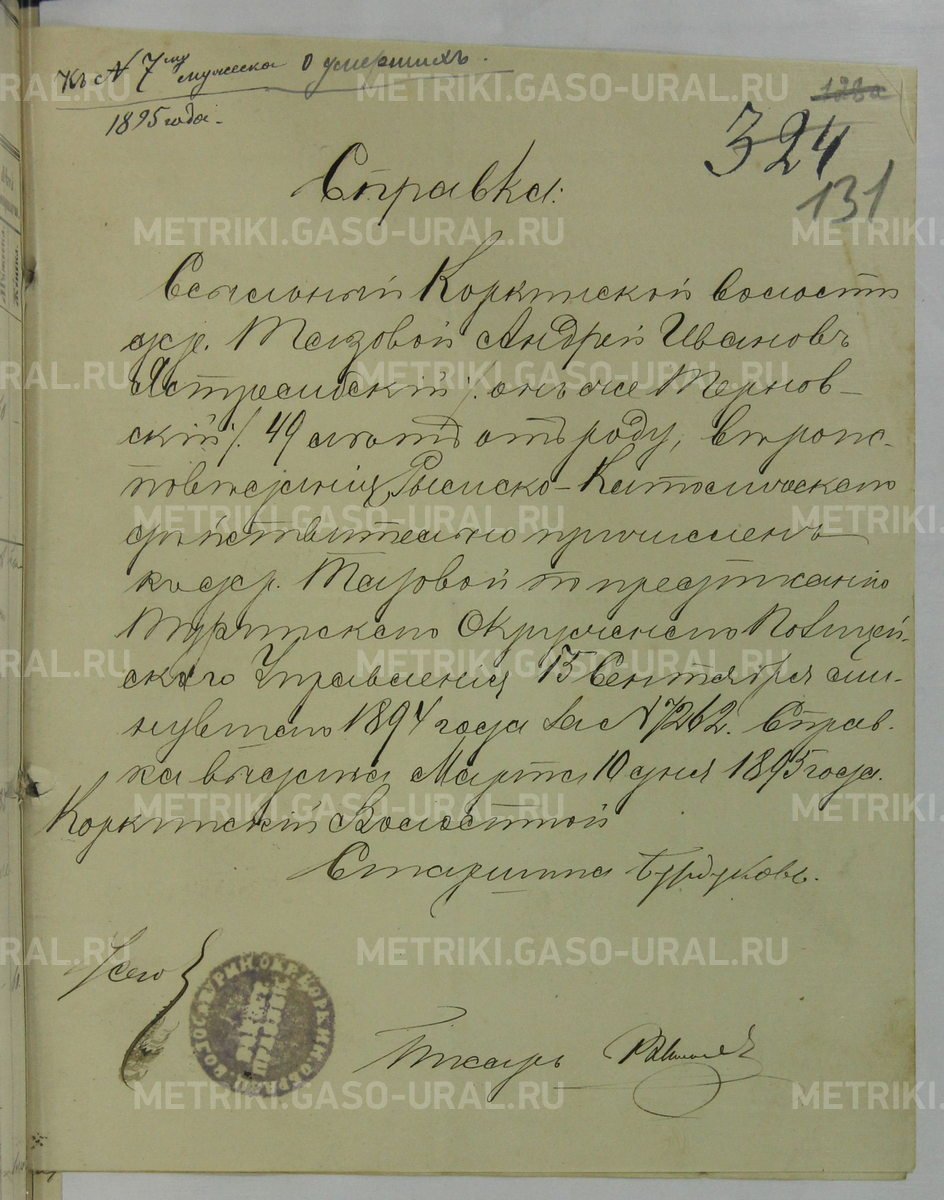 Къ № 7му мужеска о умершихъ.
1895 года.
128а
324
131
Справка.
Ссыльный Коркинской волости
дер. Таловой Андрей Ивановъ
Ястрембскій /: онъ же Тернов-
скій :/ 49 лѣтъ отъ роду, вѣроис-
повѣданія Римско-Католическаго
дѣйствительно причисленъ
къ дер. Таловой по предписанію
Туринскаго Окружнаго Полицей-
скаго Управленія 15 Сентября ми-
нувшаго 1894 года за № 7262. Справ-
ка выдана Марта 10 дня 1895 года.
Коркинскій Волостной
Старшина Бурдуковъ.
ТУРИН.ОКР.КОРКИН
Писарь
METRIKI.GASO-URAL.RU